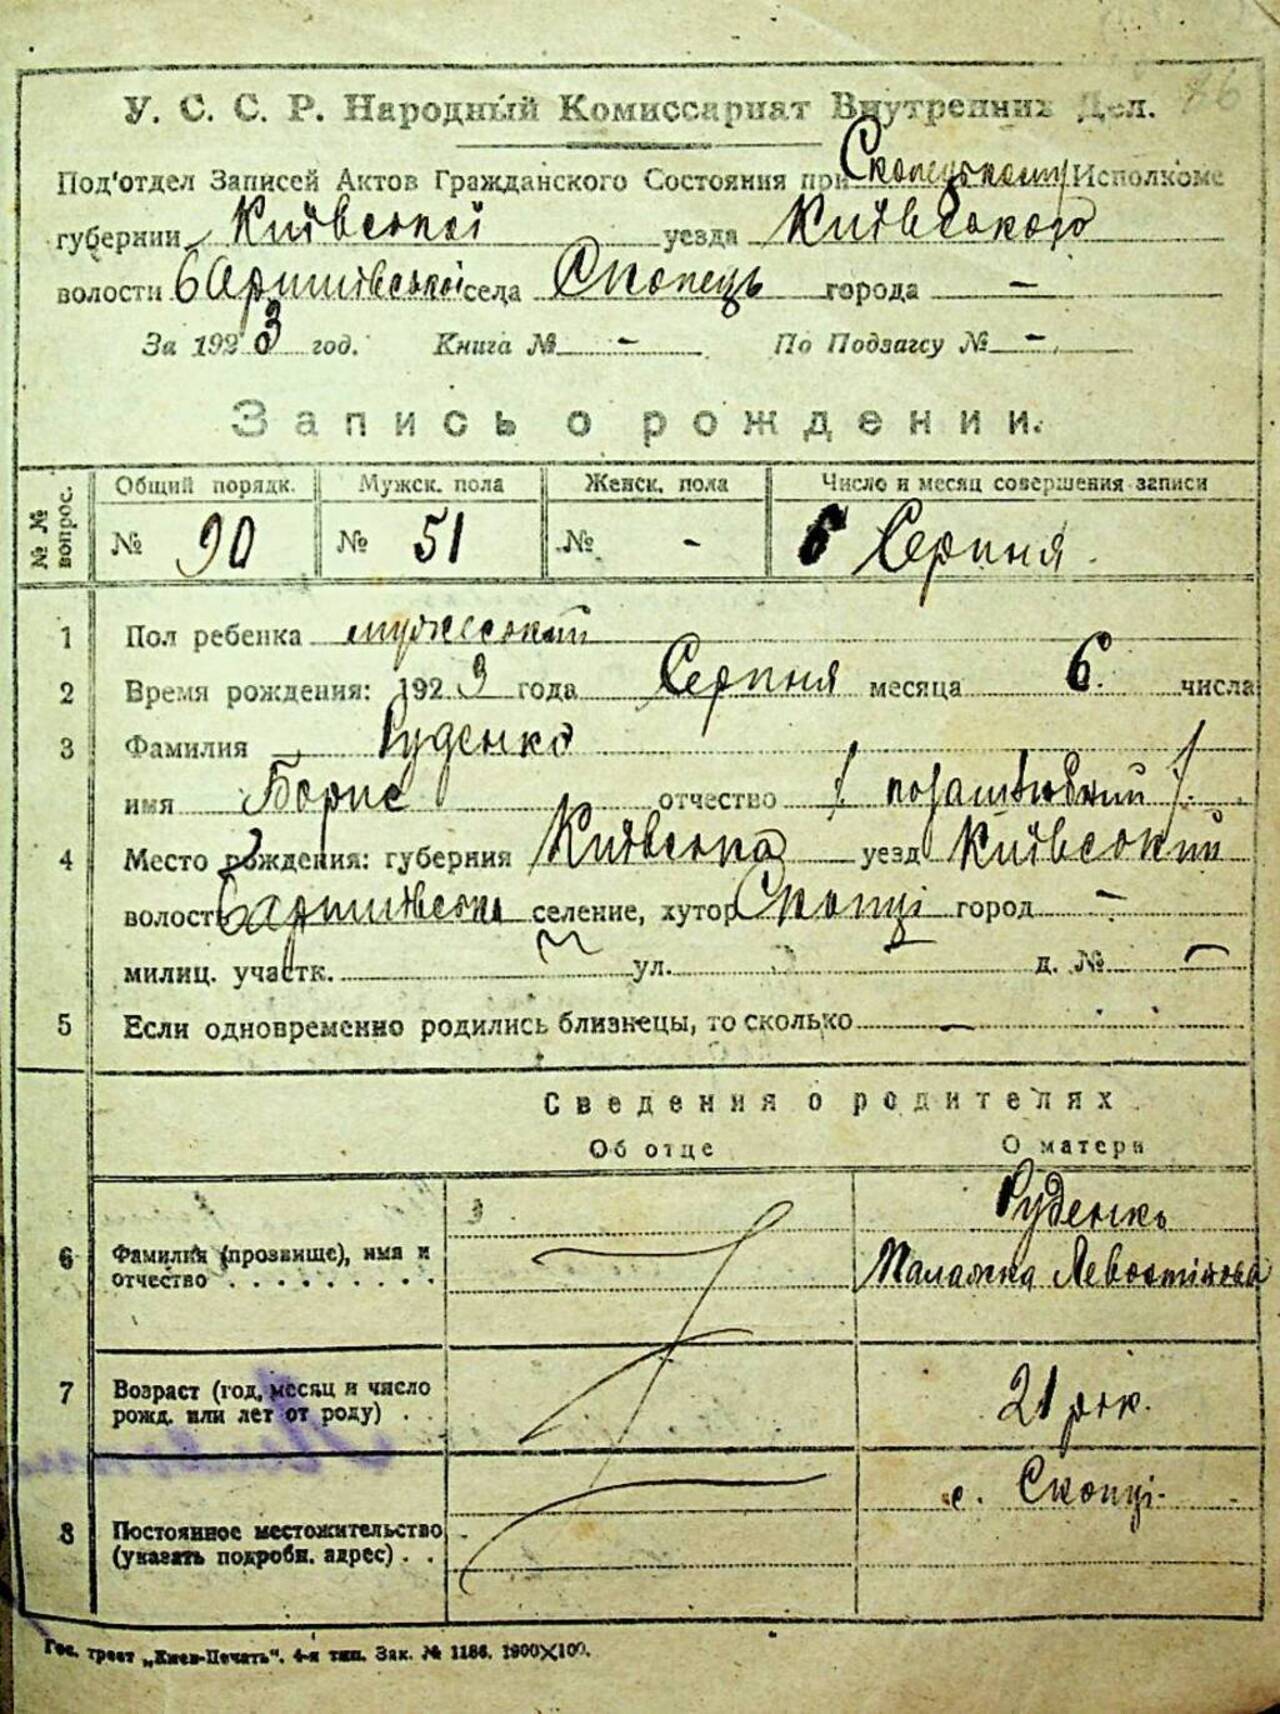 76
У. С. С. Р. Народный Комиссариат Внутренних Дел.
Под'отдел Записей Актов Гражданского Состояния при Скопецькому Исполкоме
губернии Київської уезда Київського
волости Баришівської села Скопець города -
За 1923 год. Книга № - По Подзагсу № -
Запись о рождении.
№ № вопрос. Общий порядк. Мужск. пола Женск. пола Число и месяц совершения записи
№ 90 № 51 № - 6 Серпня
1 Пол ребенка мужеський
2 Время рождения: 1923 года Серпня месяца 6 числа
3 Фамилия Руденко
имя Борис отчество / позашлюбний /.
4 Место рождения: губерния Київська уезд Київський
волость Баришівська селение, хутор Скопці город -
милиц. участк. ул. д. № -
5 Если одновременно родились близнецы, то сколько -
Сведения о родителях
Об отце О матери
Руденкь
6 Фамилия (прозвище), имя и отчество . . . . . . . . . Малашка
7 Возраст (год, месяц и число рожд. или лет от роду) . . 21 рок.
с. Скопці.
8 Постоянное местожительство (указать подробн. адрес) . .
Гос. трест „Киев-Печать“. 4-я тип. Зак. № 1186. 1900×100.